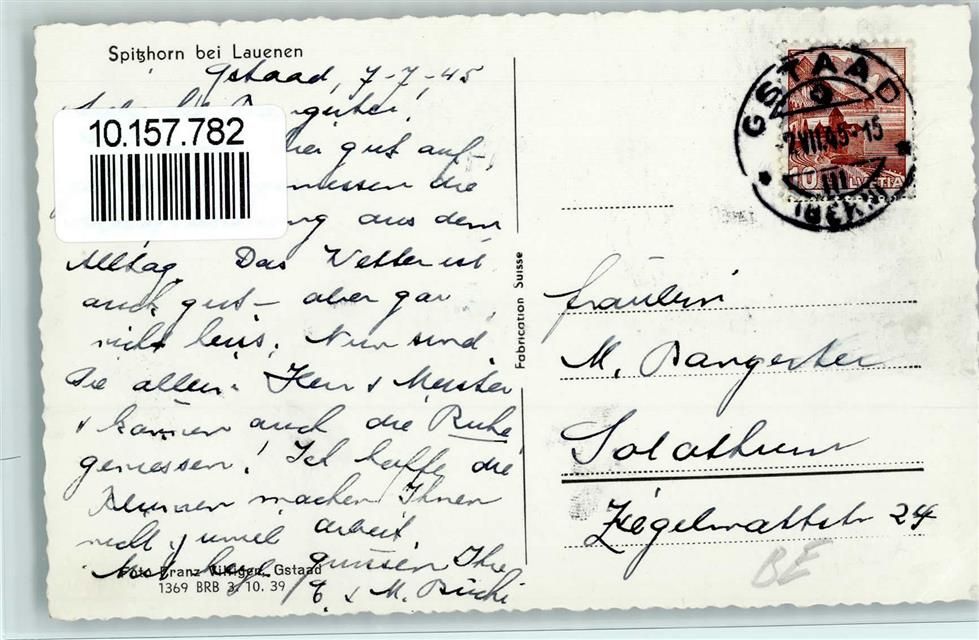 Spitzhorn bei Lauenen
Gstaad, 7-7-45
10.157.782
gut auf-
die
aus dem
Alltag. Das Wetter ist
auch gut – aber gar
nicht heiss. Nun sind
Sie allein. Herr & Meister
& können auch die Ruhe
geniessen! Ich hoffe die
Blumen machen Ihnen
nicht zuviel Arbeit.
grüssen Ihre
& M. Büchi
Foto Franz Villiger, Gstaad
1369 BRB 3. 10. 39
Fabrication Suisse
GSTAAD
VII.45-15
(BERN)
10 HELVETIA
Fräulein
M. Bangerter
Solothurn
Ziegelmattstr 24
BE